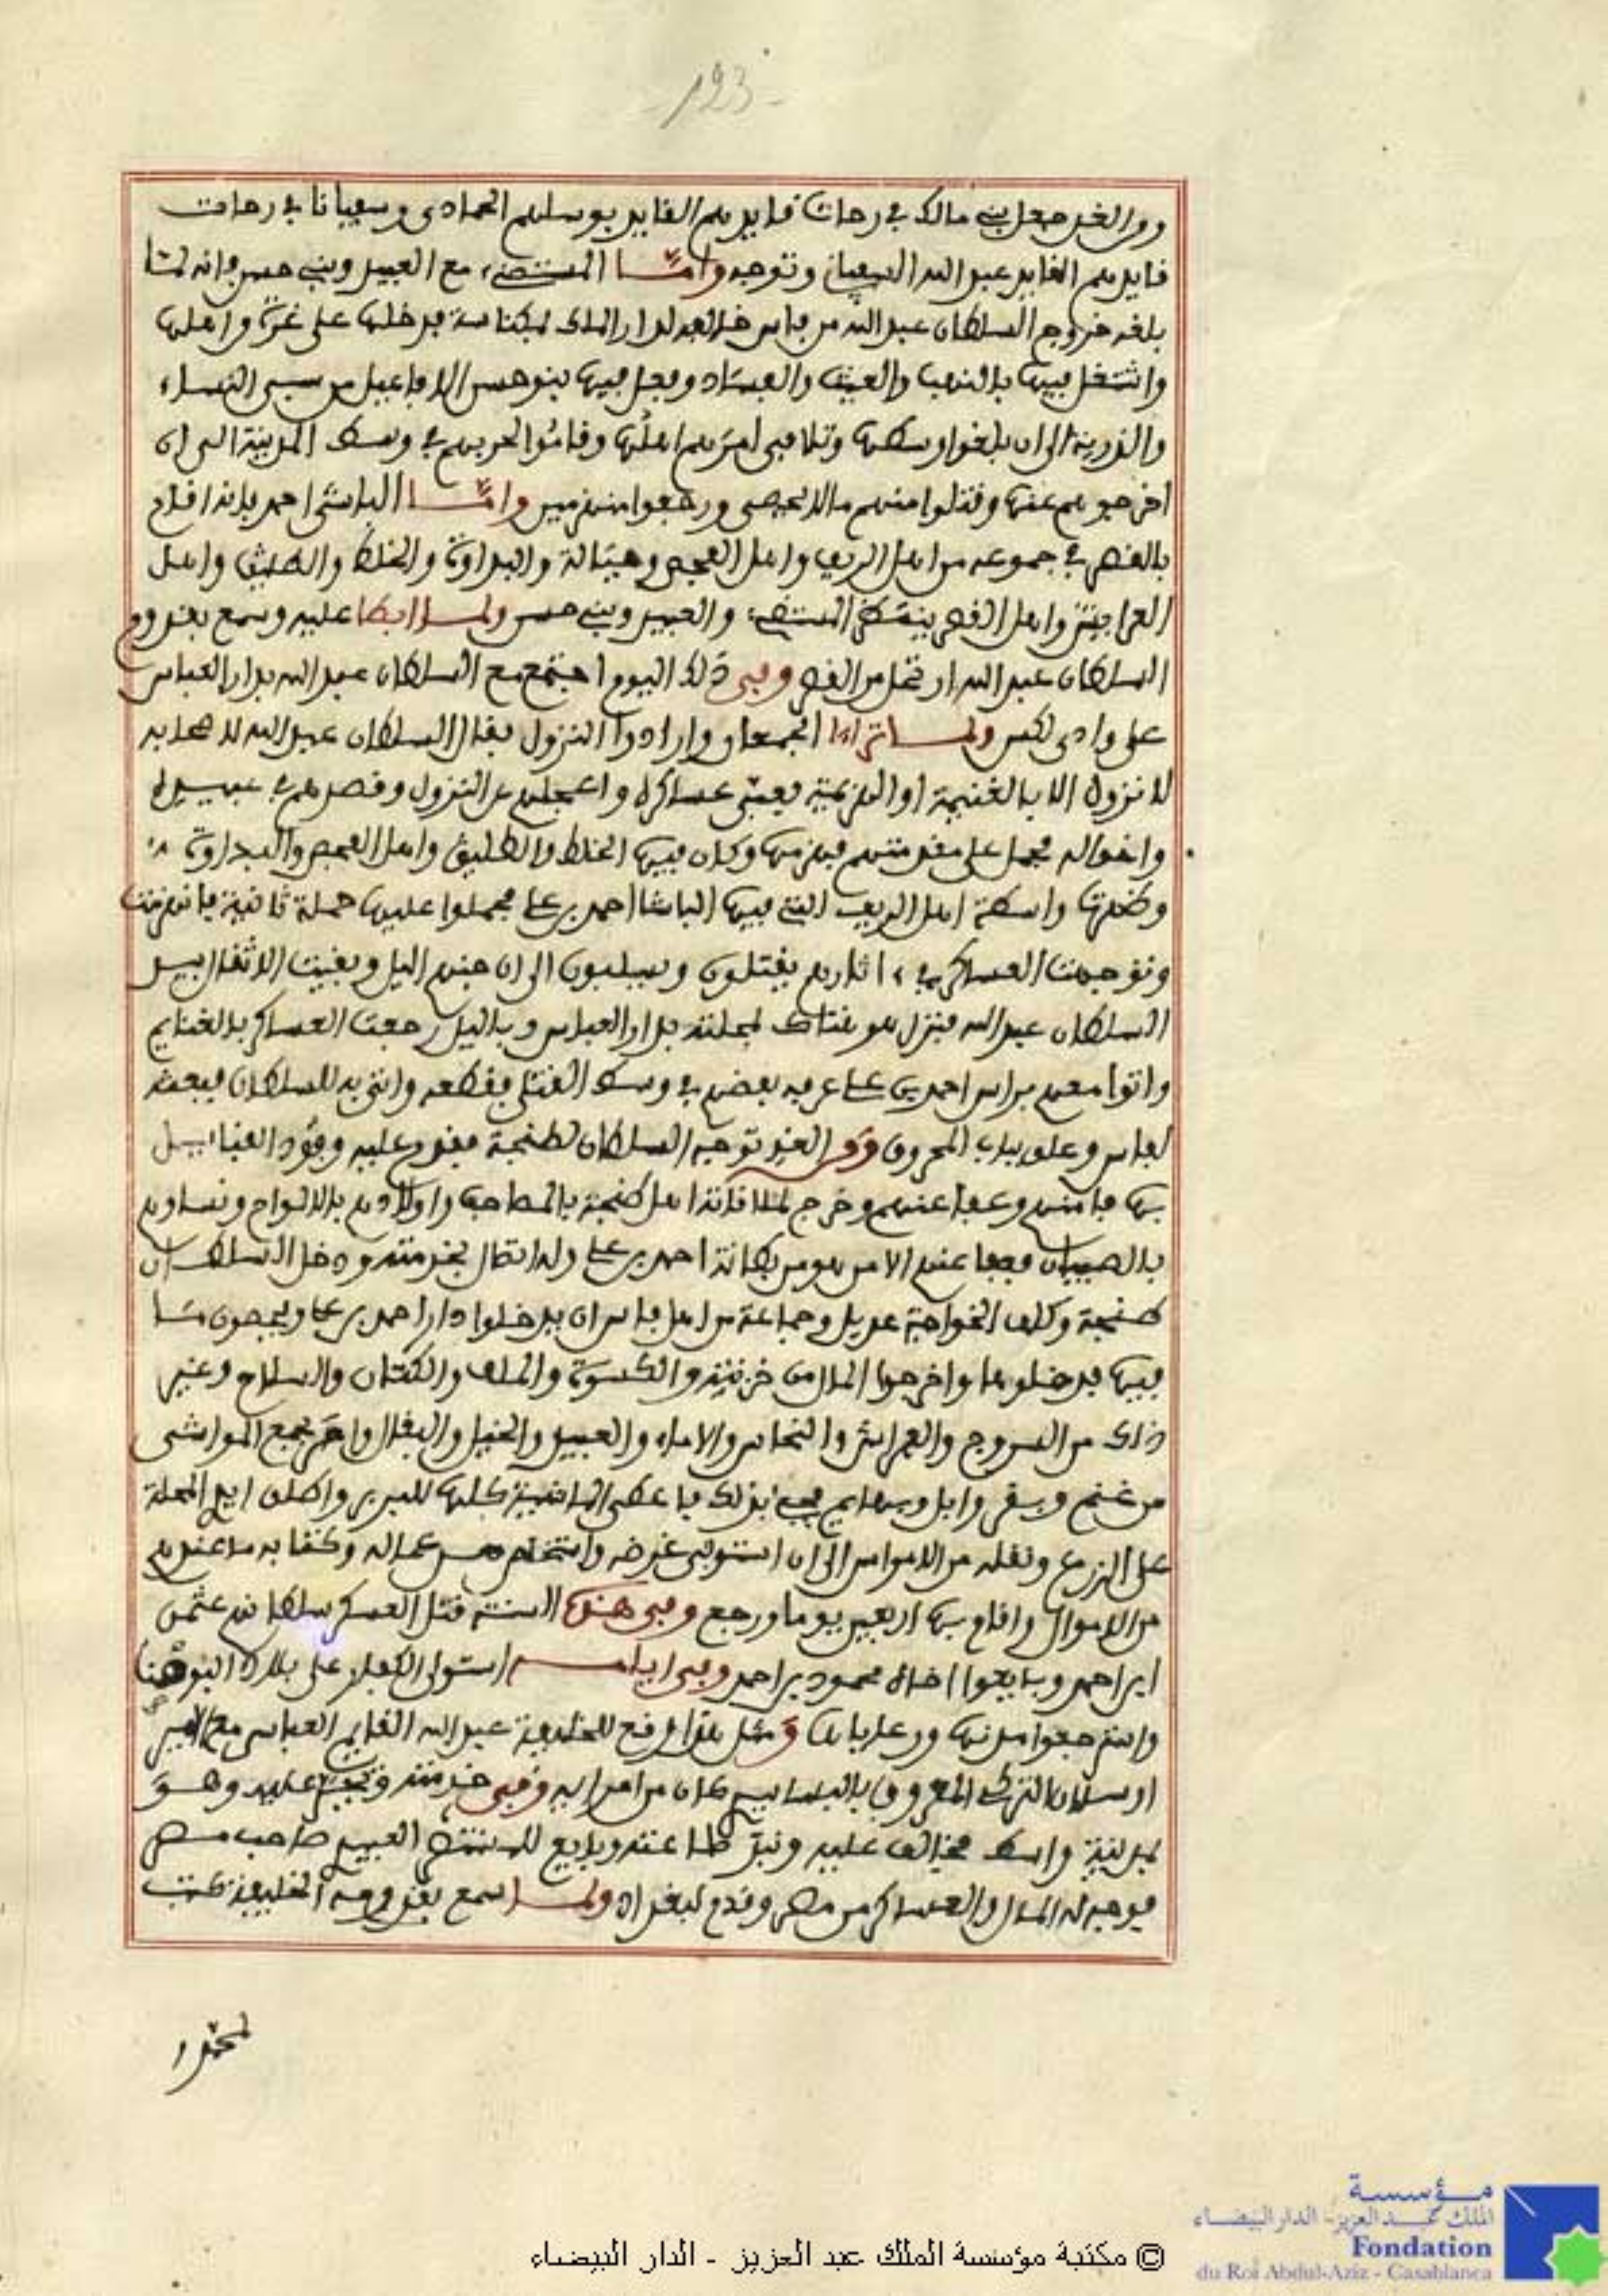 -123-
ومن الغد جعل بني مالك في رحات قايدهم القايد بوسلهم الحمادي وسفيانا في رحات
قايدهم القايد عبد الله السفياني وتوجه وامّا المستضيء مع العبيد وبني حسن فانه لمّا
بلغه خروج السلطان عبد الله من فاس خالفه لدار الملك لمكناسة فدخلها على غرة من اهلها
واشتغل فيها بالنهب والعيث والفساد وفعل فيها بنو حسن الافاعيل من سبي النساء
والذرية الى ان بلغوا وسطها وتلافى امرهم اهلها وقاموا لحربهم في وسط المدينة الى ان
اخرجوهم عنها وقتلوا منهم ما لا يحصى ورجعوا منهزمين وامّا الباشى احمد فانه اقام
بالقصر في جموعه من اهل الريف واهل الفحص وجبالة والبداوة والخلط والطليق واهل
العرايش واهل القصر ينتظر المستضيء والعبيد وبني حسن ولما ابطا عليه وسمع بقدوم
السلطان عبد الله ارتحل من القصر وفي ذلك اليوم اجتمع مع السلطان عبد الله بدار العباس
على وادي لكس ولما تراءا الجمعان وارادوا النزول فقال السلطان عبد الله لاصحابه
لا نزول الا بالغنيمة او الهزيمة فعبّى عساكره واعجلهم عن النزول وقصدهم في عبيده
واخواله فحمل على مقدمتهم فهزمها وكان فيها الخلط والطليق واهل الفحص والبداوة
وطحنتها واسطة اهل الريف التي فيها الباشا احمد بن علي فحملوا عليها حملة ثانية فانهزمت
وتوجهت العساكر في اثارهم يقتلون ويسلبون الى ان جنهم اليل وبقيت الاثقال بيد
السلطان عبد الله فنزل هو هناك لمحلته بدار العباس وباليل رجعت العساكر بالغنايم
واتوا معهم براس احمد بن علي عرفه بعضهم في وسط القتلى فقطعه واتى به للسلطان فبعثه
لفاس وعلق بباب المحروق ومن الغد توجه السلطان لطنجة فقدم عليه وفود القبايل
بها فامنهم وعفا عنهم وخرج لملاقاته اهل طنجة بالمصاحف واولادهم بالالواح ونساوهم
بالصبيان فعفا عنهم الا من هو من بطانة احمد بن علي وله اتصال بخدمته ودخل السلطان
طنجة وكلف الخواجة عديل وجماعة من اهل فاس ان يدخلوا دار احمد بن علي ويحصون ما
فيها فدخلوها واخرجوا المال من خزينه والكسوة والملف والكتان والسلاح وغير
ذلك من السروج والفراش والنحاس والاماء والعبيد والخيل والبغال وامر بجمع المواشي
من غنم وبقر وابل وبهايم فجيء بذلك فاعطى الماشية كلها للبربر واطلق ايدي المحلة
على الزرع ونقله من الامراس الى ان استوفى غرضه واستخلص من عماله وكتابه ما عندهم
من الاموال واقام بها اربعين يوما ورجع وفي هذه السنة قتل العسكر سلطانه عثمن
ابن احمد وبايعوا اخاه محمود بن احمد وفي ايامه استولى الكفار على بلاد البوشنا
واسترجعوا مدنها ورعاياها ومثل هذا وقع للخليفة عبد الله القايم العباسي مع الامير
ارسلان التركي المعروف بالبساسيري كان من امرايه وفي خدمته وتغير عليه وهو
بمدينة واسط فخالف عليه ونبذ طاعته وبايع للمستنصر العبيدي صاحب مصر
فوجه له المال والعساكر من مصر وقدم لبغداد ولما سمع بقدومه الخليفة كتب
© مكتبة مؤسسة الملك عبد العزيز - الدار البيضاء
مؤسسة
الملك عبد العزيز - الدار البيضاء
Fondation
du Roi Abdul-Aziz - Casablanca